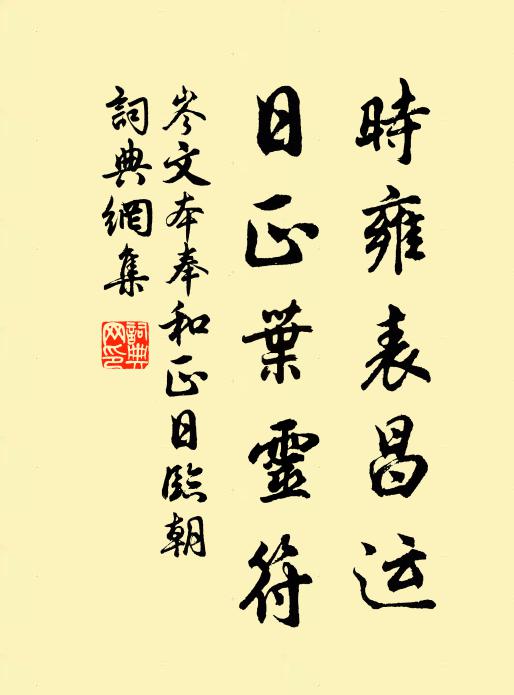 時雍表昌运
日正葉靈符
岑文本奉和正日臨朝
詞典網集
詞典网印